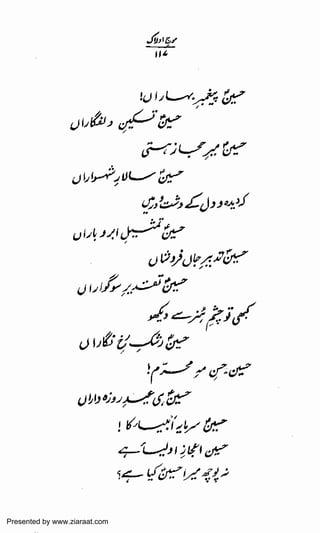 موجِ ادراک
۱۱۷
حسینؑ پیغمبرِ بہاراں!
حسینؑ تسکینِ دلفگاراں
حسینؑ میرِ حجازِ ہستی
حسینؑ سالارِ شہسواراں
گزیدہ و دل کے دشت و در میں
حسینؑ تمثیلِ ابر و باراں
حسینؑ تدبیرِ جاں فروشاں
حسینؑ تقدیرِ سوگواراں
کبھی تو چشمِ ہنر سے دیکھو
حسینؑ رشکِ رخِ نگاراں
حسنؑ چمن موسمِ محرم!
حسینؑ ہی عیدِ روزہ داراں
حسینؑ سرمایۂ انبیاء کا!
حسینؑ اعجازِ اولیاء ہے
نہ پوچھ میرا حسینؑ کیا ہے؟
Presented by www.ziaraat.com